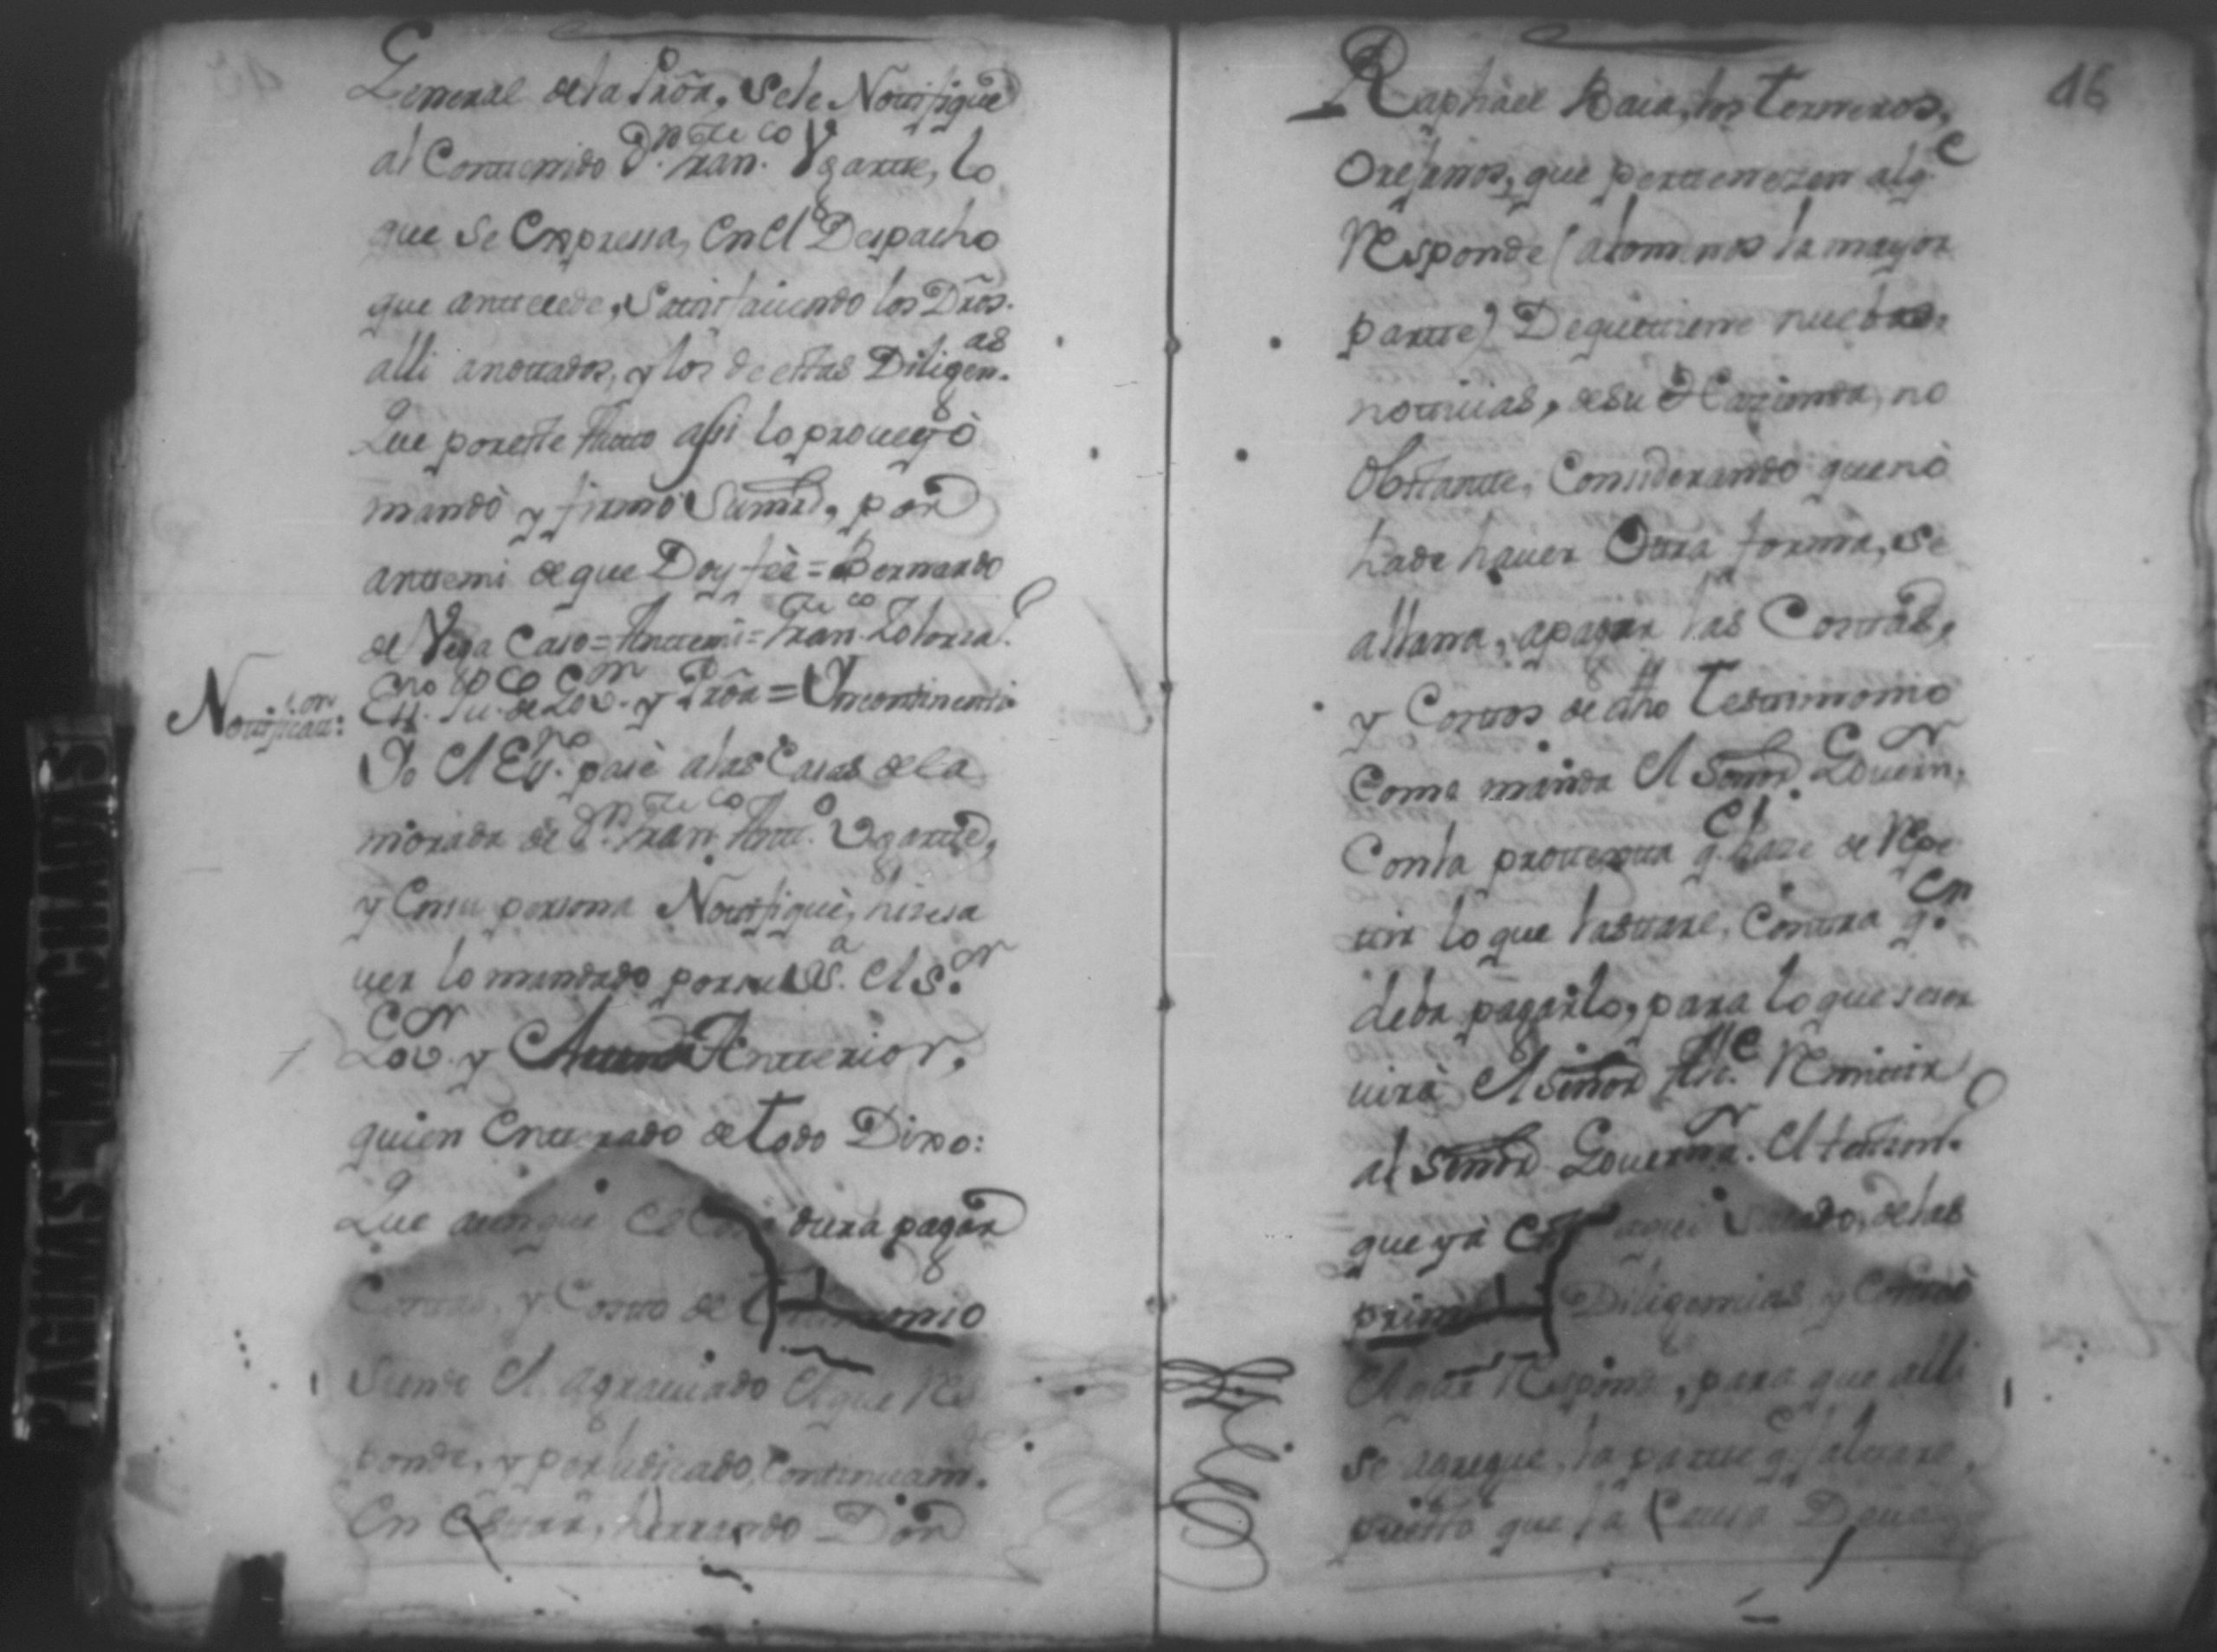 General de la Prôn, sele Notifique
al Contenido Dn. Franco. Vgarte, lo
que se Expressa, En El Despacho
que antecede, Satisfaciendo los Dros.
alli anotados, y los de estas Diligenas.
Que por este Auto assi lo proueyò
mandò y firmò Sumrd, por
antemi de que Doy feè = Bernardo
de Vega Caso = Antemi = Franco.
Essno. Puco. de Gov.on y Prôn = Yncontinenti
Notificacion:
Yo El Essno. pasè alas Casas dela
morada de Dn. Franco. Anto. Vgarte,
y Ensu persona Notifiquè, hise sa
uer lo mandado por su Sa. El Sor.
Gov.or y Anterior.
quien Enterado de todo Dixo:
Que aunque dura pagar
Costas, y Costo de
Siendo El agrauiado El que Res
ponde, y perjudicado, Continuam.
En Estar, herrando Don
16
Raphael Baca, los Terneros,
Orejanos, que pertenezen alqe.
Responde (alomenos la mayor
parte) De que tiene nuebas,
noticias, de su Hazienda, no
Obstante, Considerando que nò
hade hauer Otra forma, se
allana, apagar las Costas,
y Costos de dho Testimonio
Como manda El Señor Gouern.or
Con la protexta qe. haze de Repe
tir lo que lastare, Contra qn.
deba pagarlo, para lo que se ser
uirà El Señor Alce. Remitir
al Señor Gouernr. El testimo.
que ya aqui delas
Diligencias, y Como
El que Responde, para que alli
se agregue, la parte qe. faltare,
puesto que la Causa
PAGINAS MANCHADAS